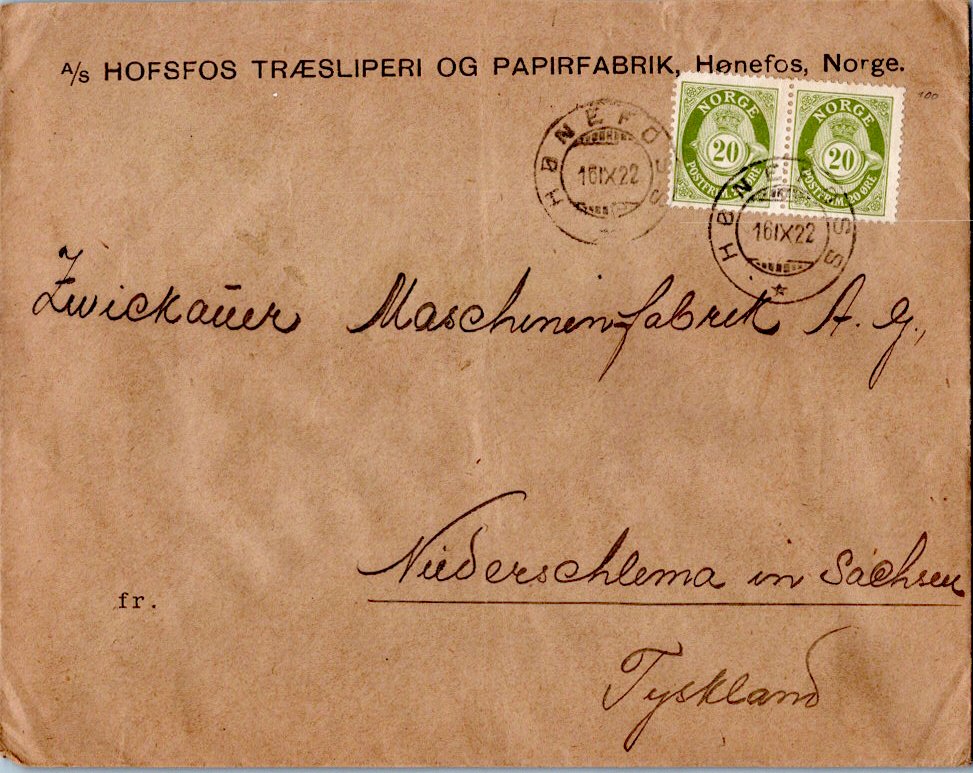 A/s HOFSFOS TRÆSLIPERI OG PAPIRFABRIK, Hønefos, Norge.
100
NORGE
20
POSTFRIM. 20 ØRE
NORGE
20
POSTFRIM. 20 ØRE
HØNEFOSS
16IX22
HØNEFOSS
16IX22
Zwickauer Maschinenfabrik A. G.,
Niederschlema in Sachsen
fr.
Tyskland